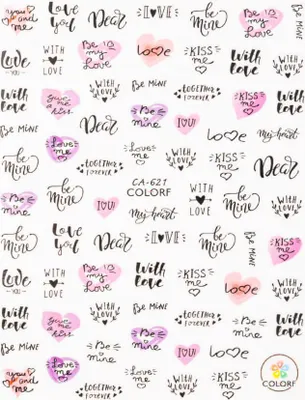 you and me
Love you
Dear
I LOVE
be Mine
Be my Love
BE MINE
Love
YOU
WITH LOVE
Be my Love
Love
KISS me
With Love
With Love
Give me kiss
WITH LOVE
Be mine
I♡U!
my heart
BE MINE
Love me
Dear
Love me
WITH LOVE
KISS me
Dear
be Mine
TOGETHER FOREVER
CA-621
COLORF
WITH LOVE
be Mine
Be mine
I♡U!
my heart
KISS me
Be mine
be Mine
Love you
Dear
I LOVE
be Mine
BE MINE
KISS me
Love
YOU
WITH LOVE
Be my Love
With Love
KISS me
Love
WITH LOVE
With Love
Give me kiss
WITH LOVE
BE MINE
TOGETHER FOREVER
With Love
BE MINE
Love me
Be mine
Be mine
I♡U!
Love
you and me
WITH LOVE
TOGETHER FOREVER
WITH LOVE
KISS me
COLORF